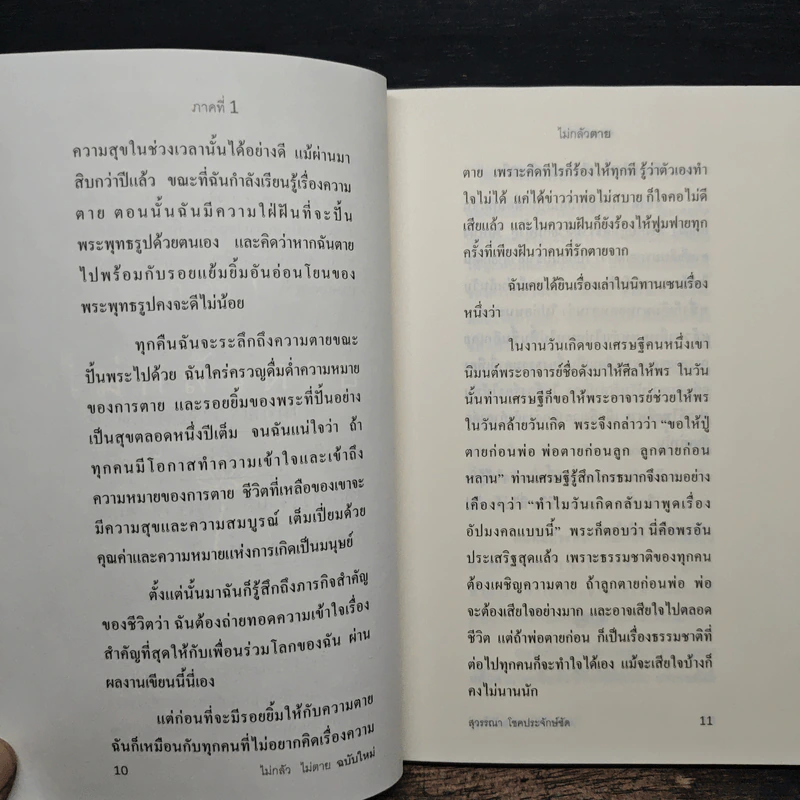 ภาคที่ 1
ความสุขในช่วงเวลานั้นได้อย่างดี แม้ผ่านมา
สิบกว่าปีแล้ว ขณะที่ฉันกำลังเรียนรู้เรื่องความ
ตาย ตอนนั้นฉันมีความใฝ่ฝันที่จะปั้น
พระพุทธรูปด้วยตนเอง และคิดว่าหากฉันตาย
ไปพร้อมกับรอยแย้มยิ้มอันอ่อนโยนของ
พระพุทธรูปคงจะดีไม่น้อย
ทุกคืนฉันจะระลึกถึงความตายขณะ
ปั้นพระไปด้วย ฉันใคร่ครวญดื่มด่ำความหมาย
ของการตาย และรอยยิ้มของพระที่ปั้นอย่าง
เป็นสุขตลอดหนึ่งปีเต็ม จนฉันแน่ใจว่า ถ้า
ทุกคนมีโอกาสทำความเข้าใจและเข้าถึง
ความหมายของการตาย ชีวิตที่เหลือของเขาจะ
มีความสุขและความสมบูรณ์ เต็มเปี่ยมด้วย
คุณค่าและความหมายแห่งการเกิดเป็นมนุษย์
ตั้งแต่นั้นมาฉันก็รู้สึกถึงภารกิจสำคัญ
ของชีวิตว่า ฉันต้องถ่ายทอดความเข้าใจเรื่อง
สำคัญที่สุดให้กับเพื่อนร่วมโลกของฉัน ผ่าน
ผลงานเขียนนี้นี่เอง
แต่ก่อนที่จะมีรอยยิ้มให้กับความตาย
ฉันก็เหมือนกับทุกคนที่ไม่อยากคิดเรื่องความ
10 ไม่กลัว ไม่ตาย ฉบับใหม่
ไม่กลัวตาย
ตาย เพราะคิดทีไรก็ร้องไห้ทุกที รู้ว่าตัวเองทำ
ใจไม่ได้ แค่ได้ข่าวว่าพ่อไม่สบาย ก็ใจคอไม่ดี
เสียแล้ว และในความฝันก็ยังร้องไห้ฟูมฟายทุก
ครั้งที่เพียงฝันว่าคนที่รักตายจาก
ฉันเคยได้ยินเรื่องเล่าในนิทานเซนเรื่อง
หนึ่งว่า
ในงานวันเกิดของเศรษฐีคนหนึ่งเขา
นิมนต์พระอาจารย์ชื่อดังมาให้ศีลให้พร ในวัน
นั้นท่านเศรษฐีก็ขอให้พระอาจารย์ช่วยให้พร
ในวันคล้ายวันเกิด พระจึงกล่าวว่า “ขอให้ปู่
ตายก่อนพ่อ พ่อตายก่อนลูก ลูกตายก่อน
หลาน” ท่านเศรษฐีรู้สึกโกรธมากจึงถามอย่าง
เคืองๆว่า “ทำไมวันเกิดกลับมาพูดเรื่อง
อัปมงคลแบบนี้” พระก็ตอบว่า นี่คือพรอัน
ประเสริฐสุดแล้ว เพราะธรรมชาติของทุกคน
ต้องเผชิญความตาย ถ้าลูกตายก่อนพ่อ พ่อ
จะต้องเสียใจอย่างมาก และอาจเสียใจไปตลอด
ชีวิต แต่ถ้าพ่อตายก่อน ก็เป็นเรื่องธรรมชาติที่
ต่อไปทุกคนก็จะทำใจได้เอง แม้จะเสียใจบ้างก็
คงไม่นานนัก
สุวรรณา โชคประจักษ์ชัด 11